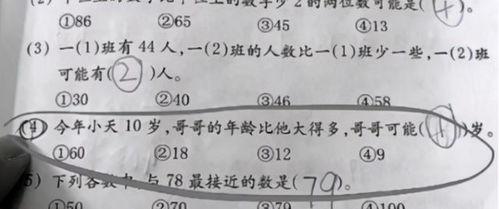 ①86 ②65 ③45 ④13
(3) 一(1)班有 44 人,一(2)班的人数比一(1)班少一些,一(2)班
可能有( 2 )人。
①30 ②40 ③46 ④58
(4) 今年小天 10 岁,哥哥的年龄比他大得多,哥哥可能( 1 )岁。
①60 ②18 ③12 ④9
5) 下列各数中,与 78 最接近的数是( 79 )。
①50 ②70 ③79 ④100